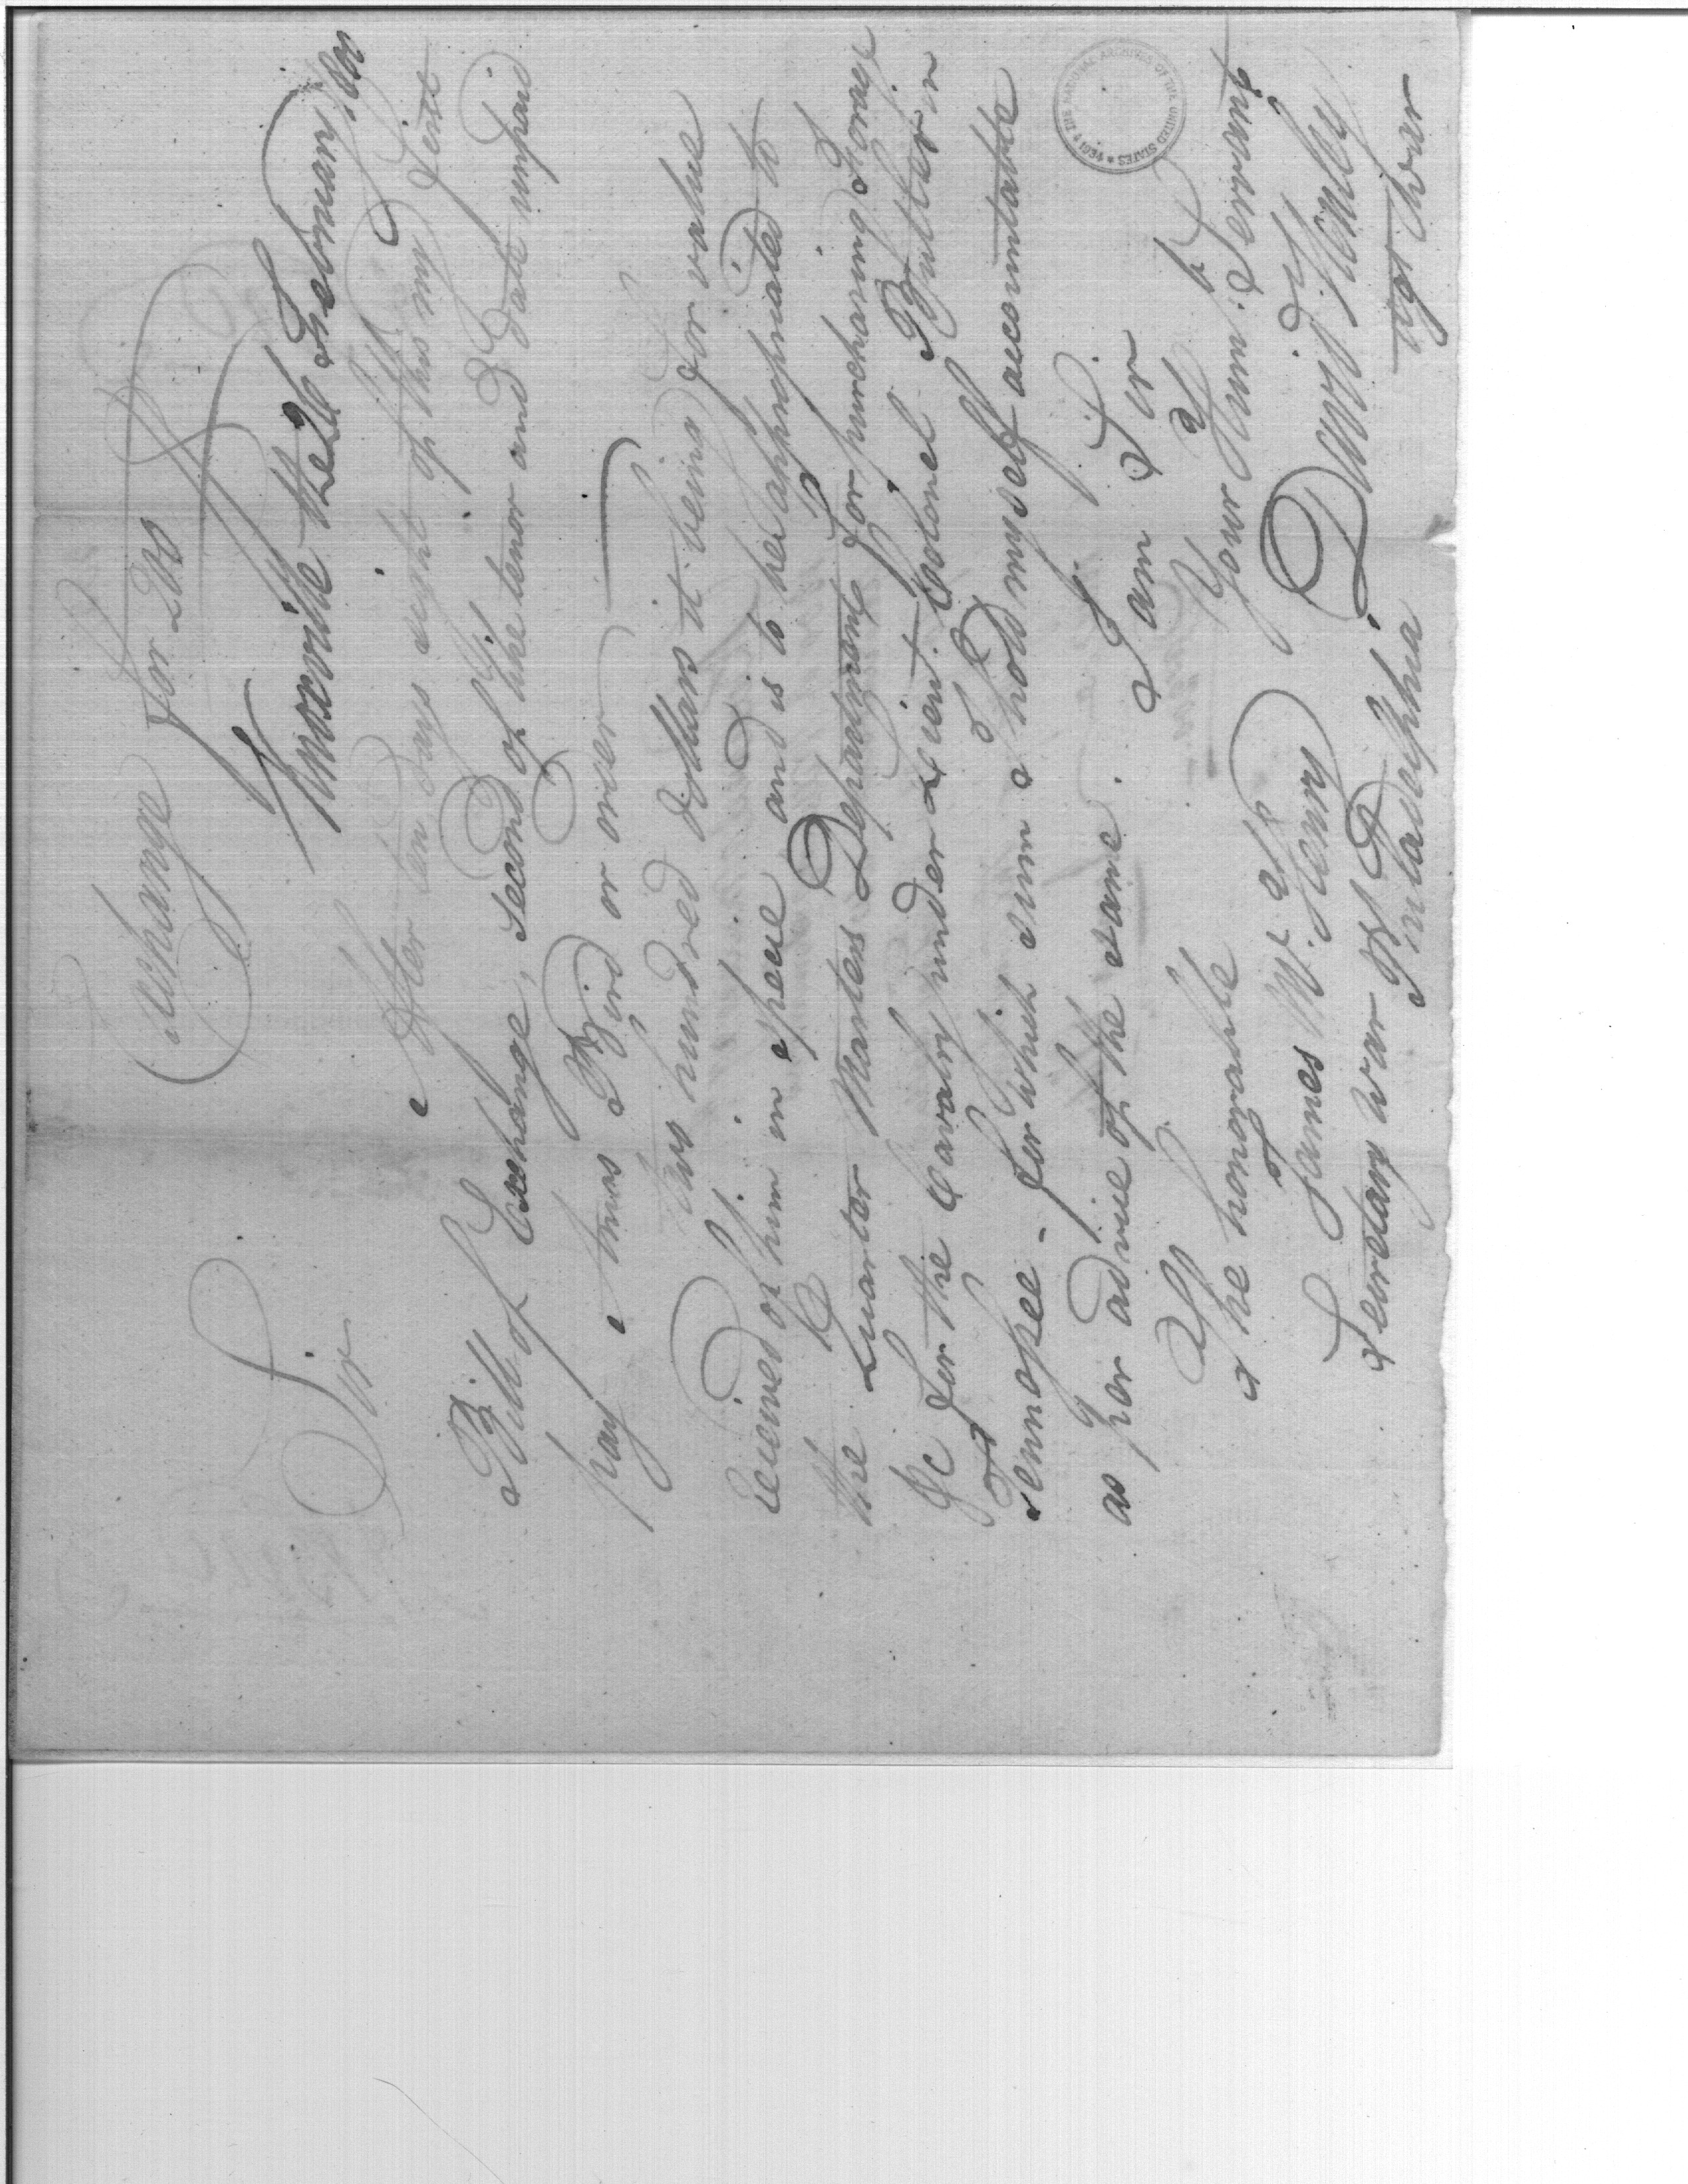 Exchange for 200
Knoxville the 26 February 1800
Sir
After ten days sight of this my first
Bill of Exchange, second of the tenor and date unpaid
pay Amos Bird or order
two hundred dollars it being for value
received of him in specie and is to be appropriated to
the Quarter Masters Department for purchasing Forage
&c for the Cavalry under Lieut. Colonel Butler in
Tennessee - for which sum I hold myself accountable
as per advice of the same. I am Sir
Your Hum. Servant
David Henley
agt War
The honorable
James McHenry
Secretary War of
Philadelphia
THE NATIONAL ARCHIVES OF THE UNITED STATES * 1934 *